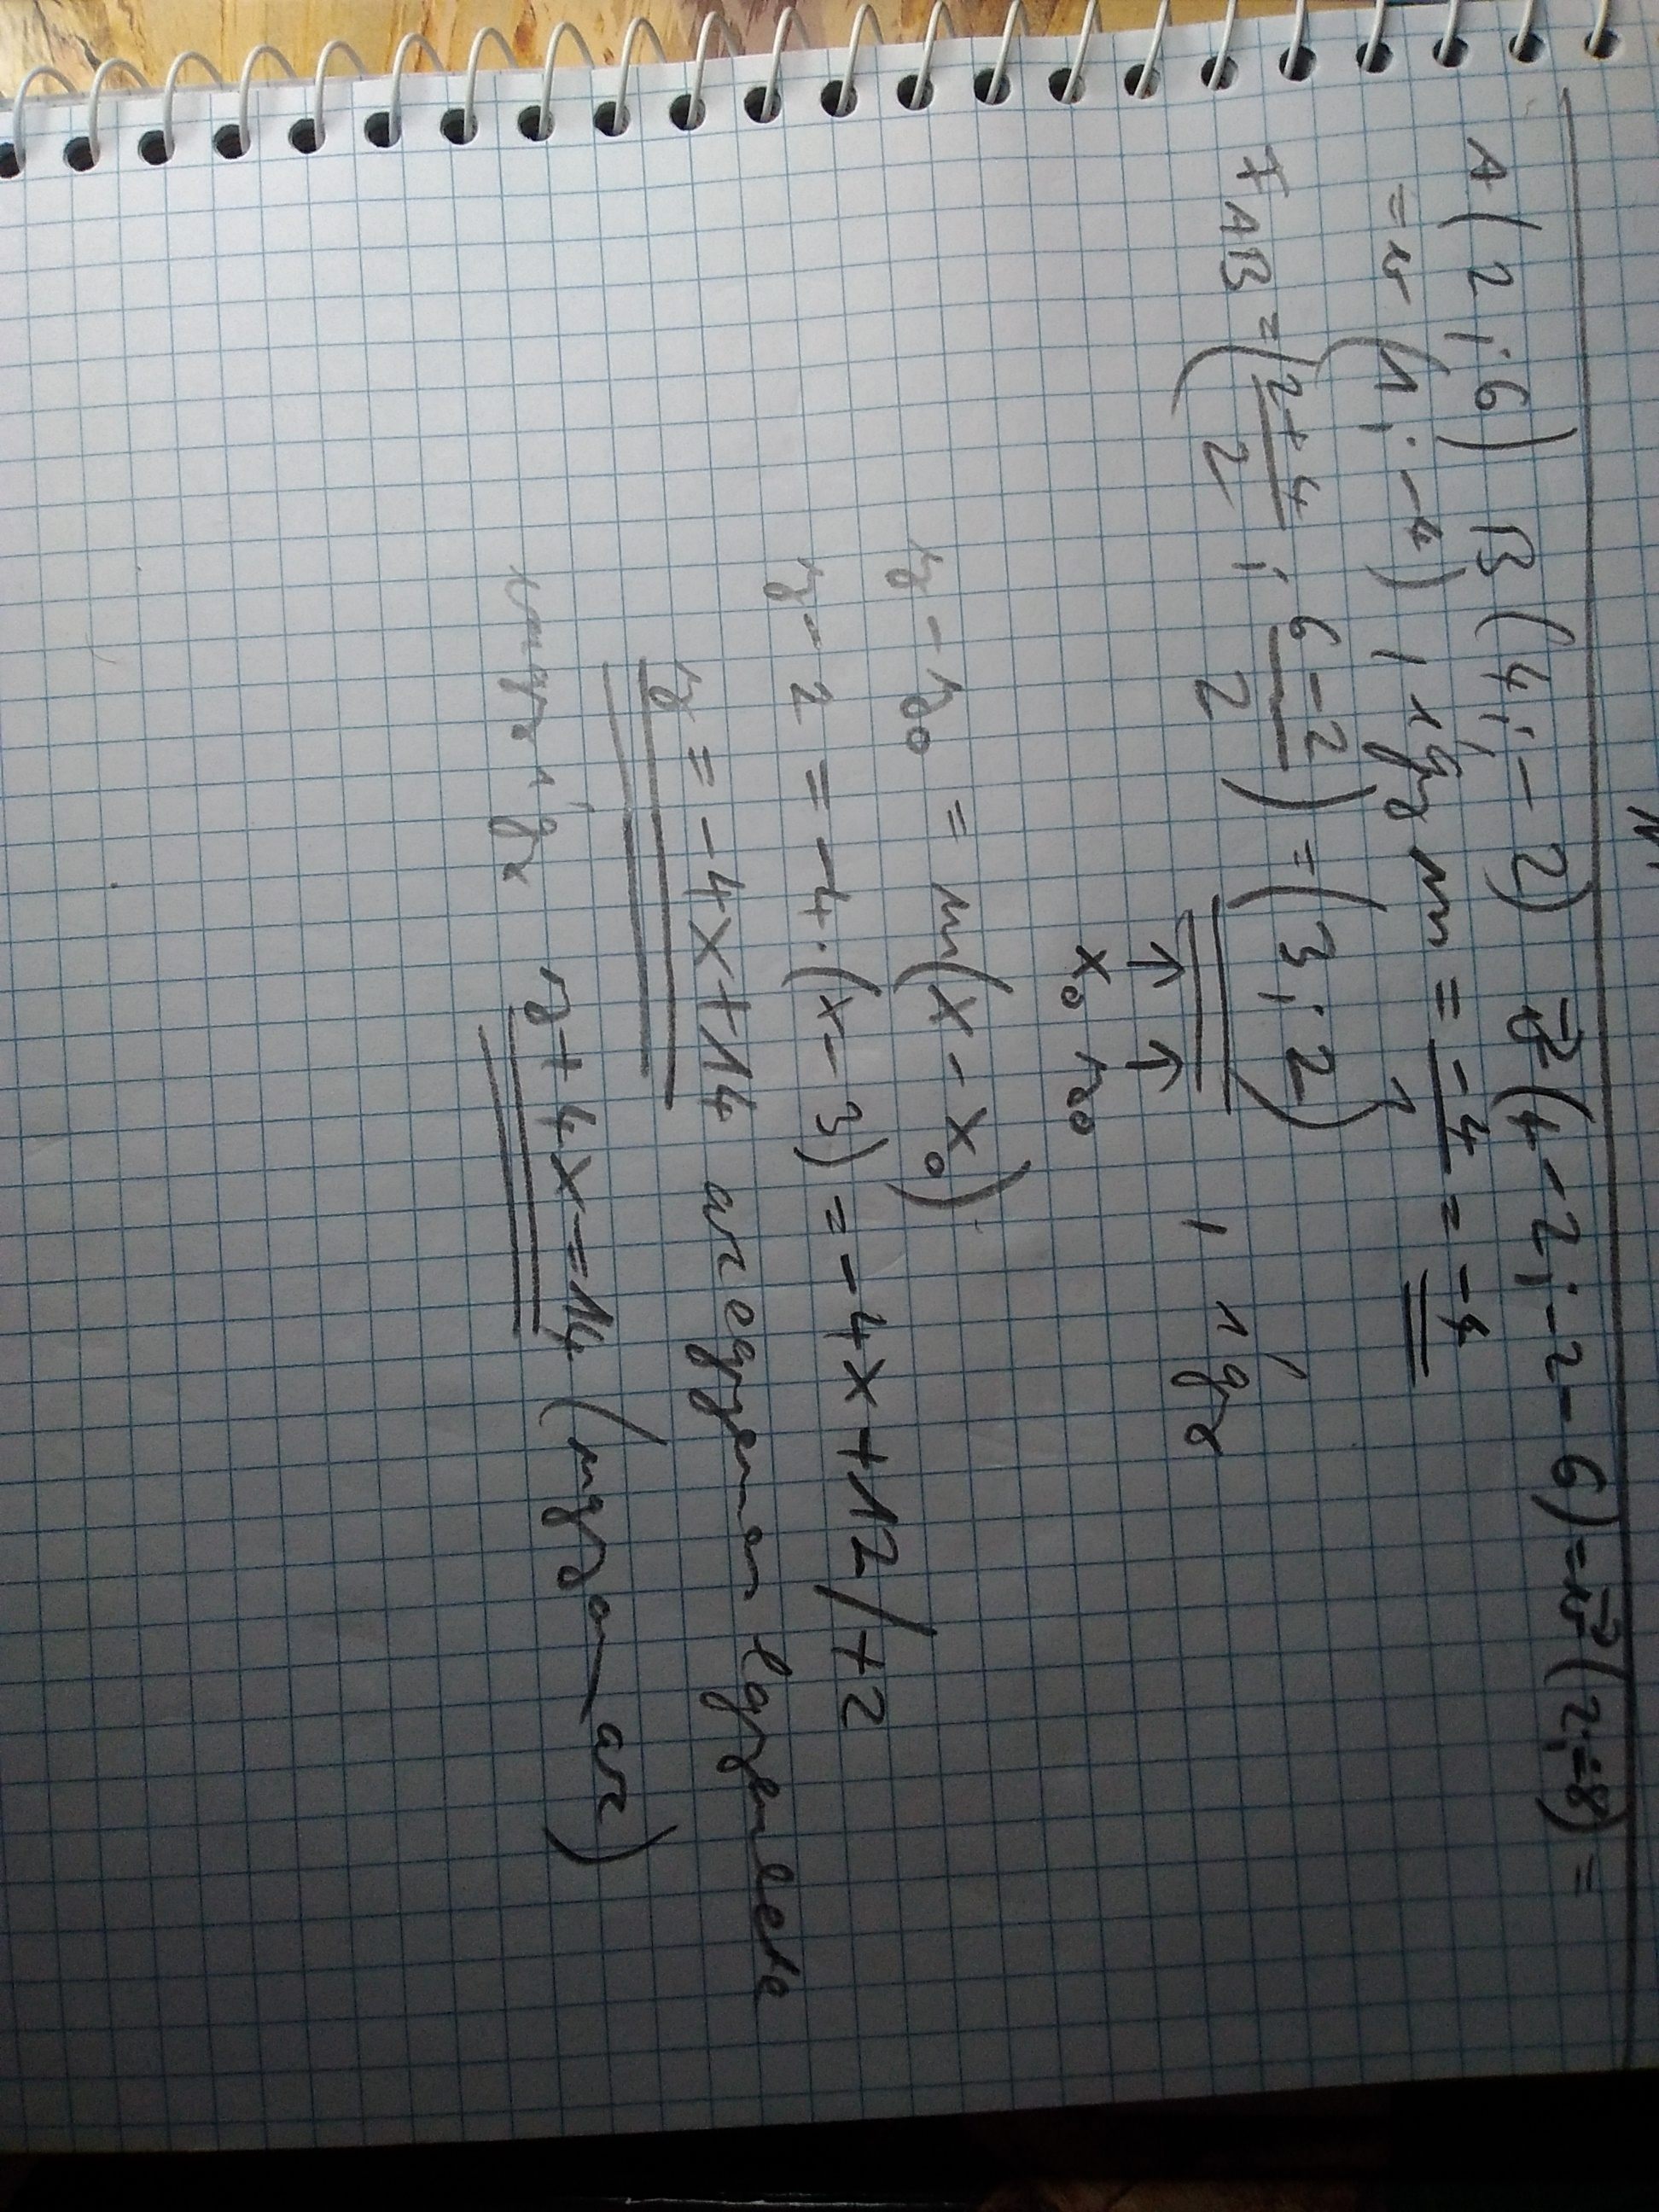 A(2;6) B(4;-2) v⃗(4-2;-2-6)=v⃗(2;-8)=
=v(1;-4), így m = -4/1 = -4
FAB=(2+4/2 ; 6-2/2) = (3;2), így
↑ ↑
x₀ y₀
y-y₀ = m(x-x₀)
y-2 = -4·(x-3) = -4x+12/+2
y = -4x+14 az egyenes egyenlete
y+4x=14 (ugyanaz)